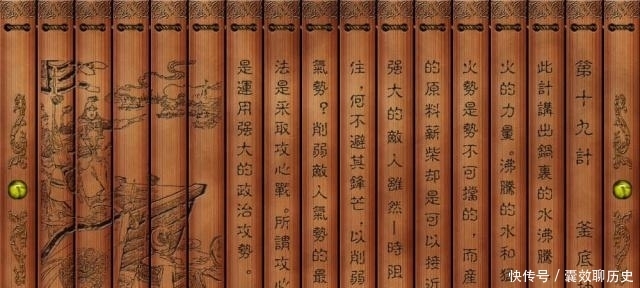 第十九計 釜底
此計講出鍋裏的水沸騰
火的力量。沸騰的水和
火勢是勢不可擋的，而產
的原料薪柴却是可以接近
强大的敵人雖然一時阻
住，何不避其鋒芒，以削弱
氣勢？削弱敵人氣勢的最
法是采取攻心戰。所謂攻心
是運用强大的政治攻勢。
快传号／囊效聊历史